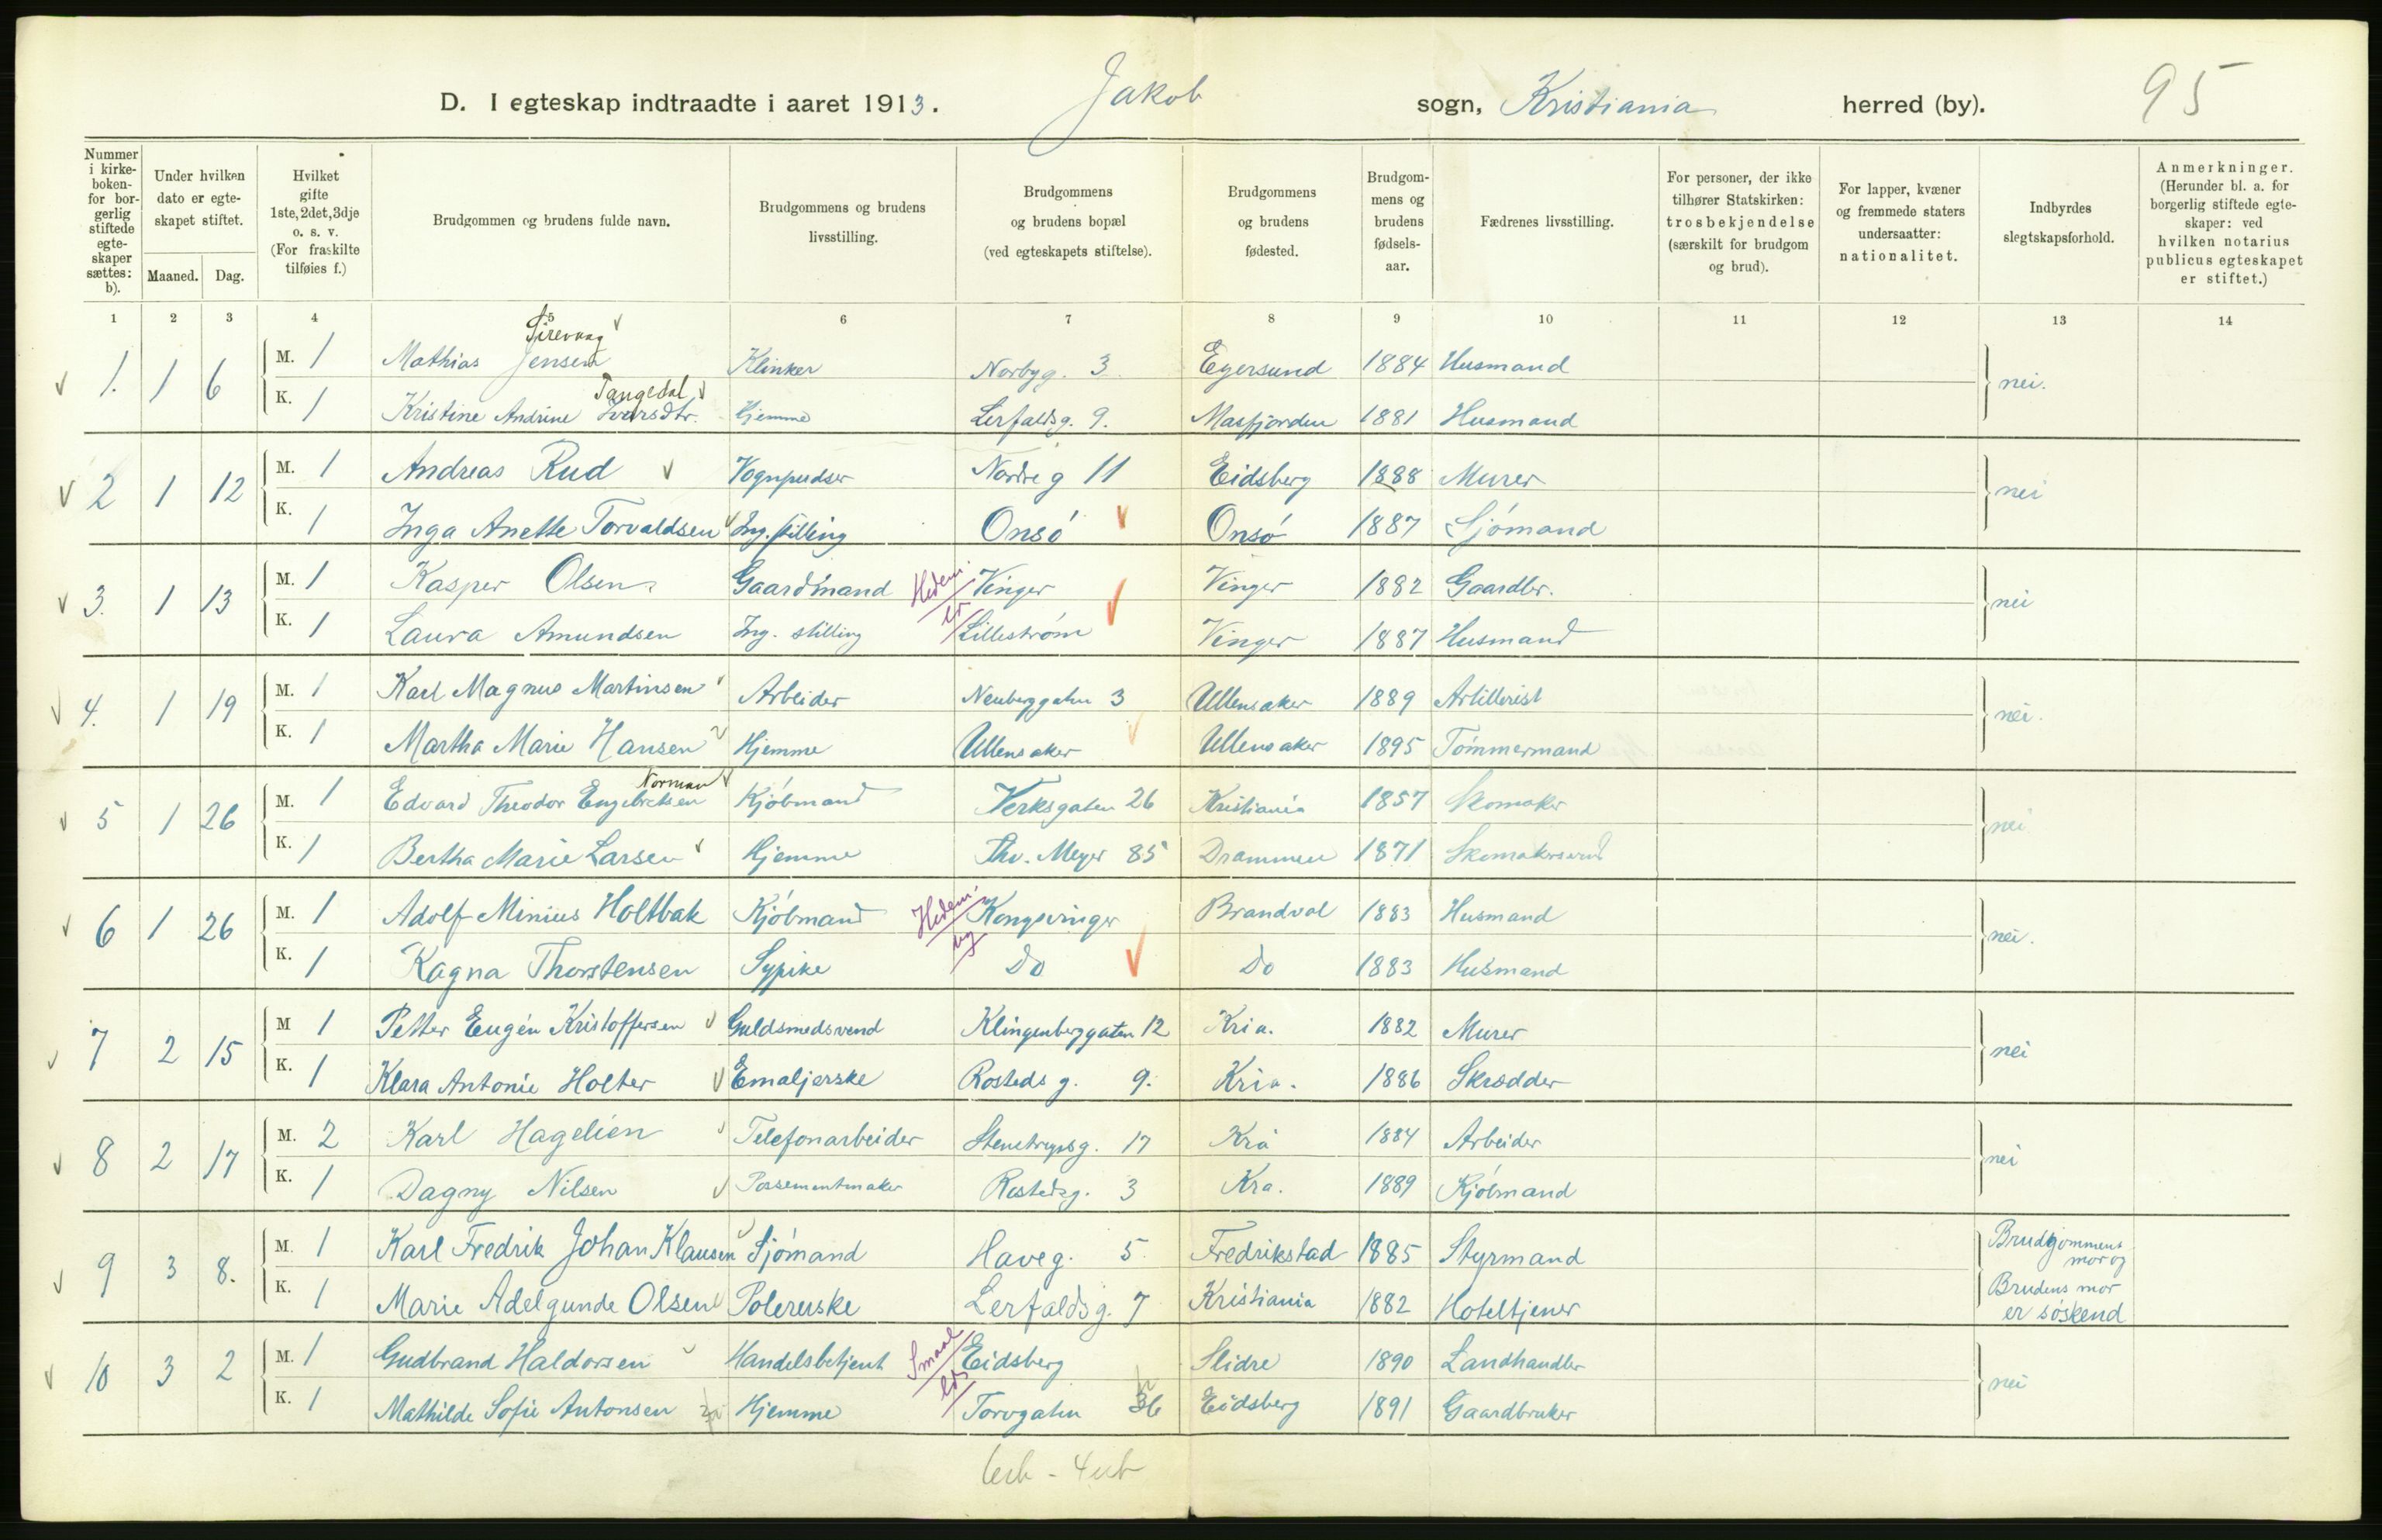 D. I egteskap indtraadte i aaret 1913. Jakob sogn, Kristiania herred (by). 95
Nummer i kirkeboken- for borgerlig stiftede egteskaper sættes: b).
Under hvilken dato er egteskapet stiftet.
Maaned. Dag.
Hvilket gifte 1ste, 2det, 3dje o. s. v. (For fraskilte tilføies f.)
Brudgommen og brudens fulde navn.
Brudgommens og brudens livsstilling.
Brudgommens og brudens bopæl (ved egteskapets stiftelse).
Brudgommens og brudens fødested.
Brudgommens og brudens fødselsaar.
Fædrenes livsstilling.
For personer, der ikke tilhører Statskirken: trosbekjendelse (særskilt for brudgom og brud).
For lapper, kvæner og fremmede staters undersaatter: nationalitet.
Indbyrdes slegtskapsforhold.
Anmerkninger. (Herunder bl. a. for borgerlig stiftede egteskaper: ved hvilken notarius publicus egteskapet er stiftet.)
1 2 3 4 5 6 7 8 9 10 11 12 13 14
Sirevaag
1. 1 6 M. 1 Mathias Jensen Klinker Norbyg. 3 Egersund 1884 Husmand nei.
Tangedal
K. 1 Kristine Andrine Iversdtr. Hjemme Lerfaldsg. 9. Masfjorden 1881 Husmand
2 1 12 M. 1 Andreas Rud Vognpudser Nordre g 11 Eidsberg 1888 Murer nei
K. 1 Inga Anette Torvaldsen Ing. stilling Onsö Onsö 1887 Sjómand
3. 1 13 M. 1 Kasper Olsen Gaardmand Hedem. Vinger Vinger 1882 Gaardbr. nei
K. 1 Laura Amundsen Ing. stilling Lillestrøm Vinger 1887 Husmand
4. 1 19 M. 1 Karl Magnus Martinsen Arbeider Neuberggaten 3 Ullensaker 1889 Artillerist nei.
K. 1 Martha Marie Hansen Hjemme Ullensaker Ullensaker 1895 Tómmermand
Norman
5 1 26 M. 1 Edvard Theodor Engebretsen Kjöbmand Verksgaten 26 Kristiania 1857 Skomaker nei
K. 1 Bertha Marie Larsen Hjemme Thv. Meyer 85 Drammen 1871 Skomakersvend
6 1 26 M. 1 Adolf Minius Holtbak Kjóbmand Hedem. Kongsvinger Brandval 1883 Husmand nei.
K. 1 Ragna Thorstensen Sypike Do Do 1883 Husmand
7 2 15 M 1 Petter Eugén Kristoffersen Guldsmedsvend Klingenberggaten 12 Kria. 1882 Murer nei
K. 1 Klara Antonie Holter Emaljerske Rosteds g. 9. Kria. 1886 Skrædder
8 2 17 M. 2 Karl Hagelien Telefonarbeider Stenstrupsg. 17 Kra 1884 Arbeider nei
K. 1 Dagny Nilsen Possementmaker Rostedsg. 3 Kra. 1889 Kjöbmand
9 3 8. M. 1 Karl Fredrik Johan Klausen Sjómand Haveg. 5. Fredrikstad 1885 Styrmand Brudgommens mor og
K. 1 Marie Adelgunde Olsen Polererske Lerfaldsg. 7 Kristiania 1882 Hoteltjener Brudens mor er söskend
10 3 2 M. 1 Gudbrand Haldorsen Handelsbetjent Smaal Eidsberg Slidre 1890 Landhandler nei
K. 1 Mathilde Sofie Antonsen Hjemme Torvgaten 36 Eidsberg 1891 Gaardbruker